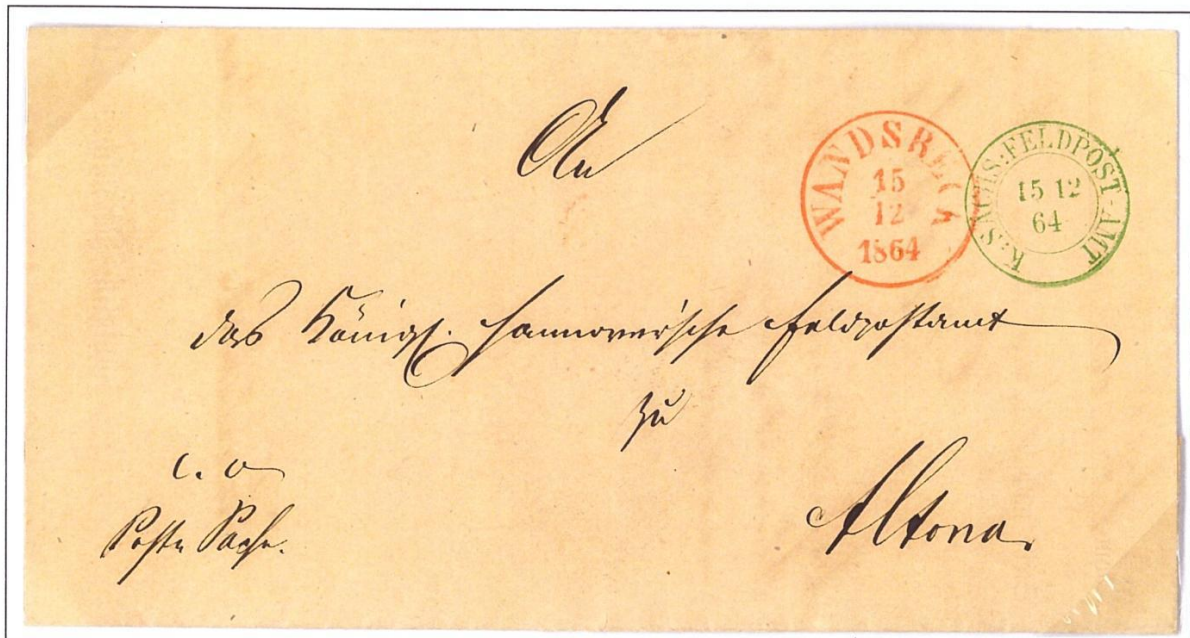 An
WANDSBECK
15
12
1864
K:SÄCHS:FELDPOST-AMT
15 12
64
das Königl. Hannoversche Feldpostamt
zu
Altona.
Post Sache.